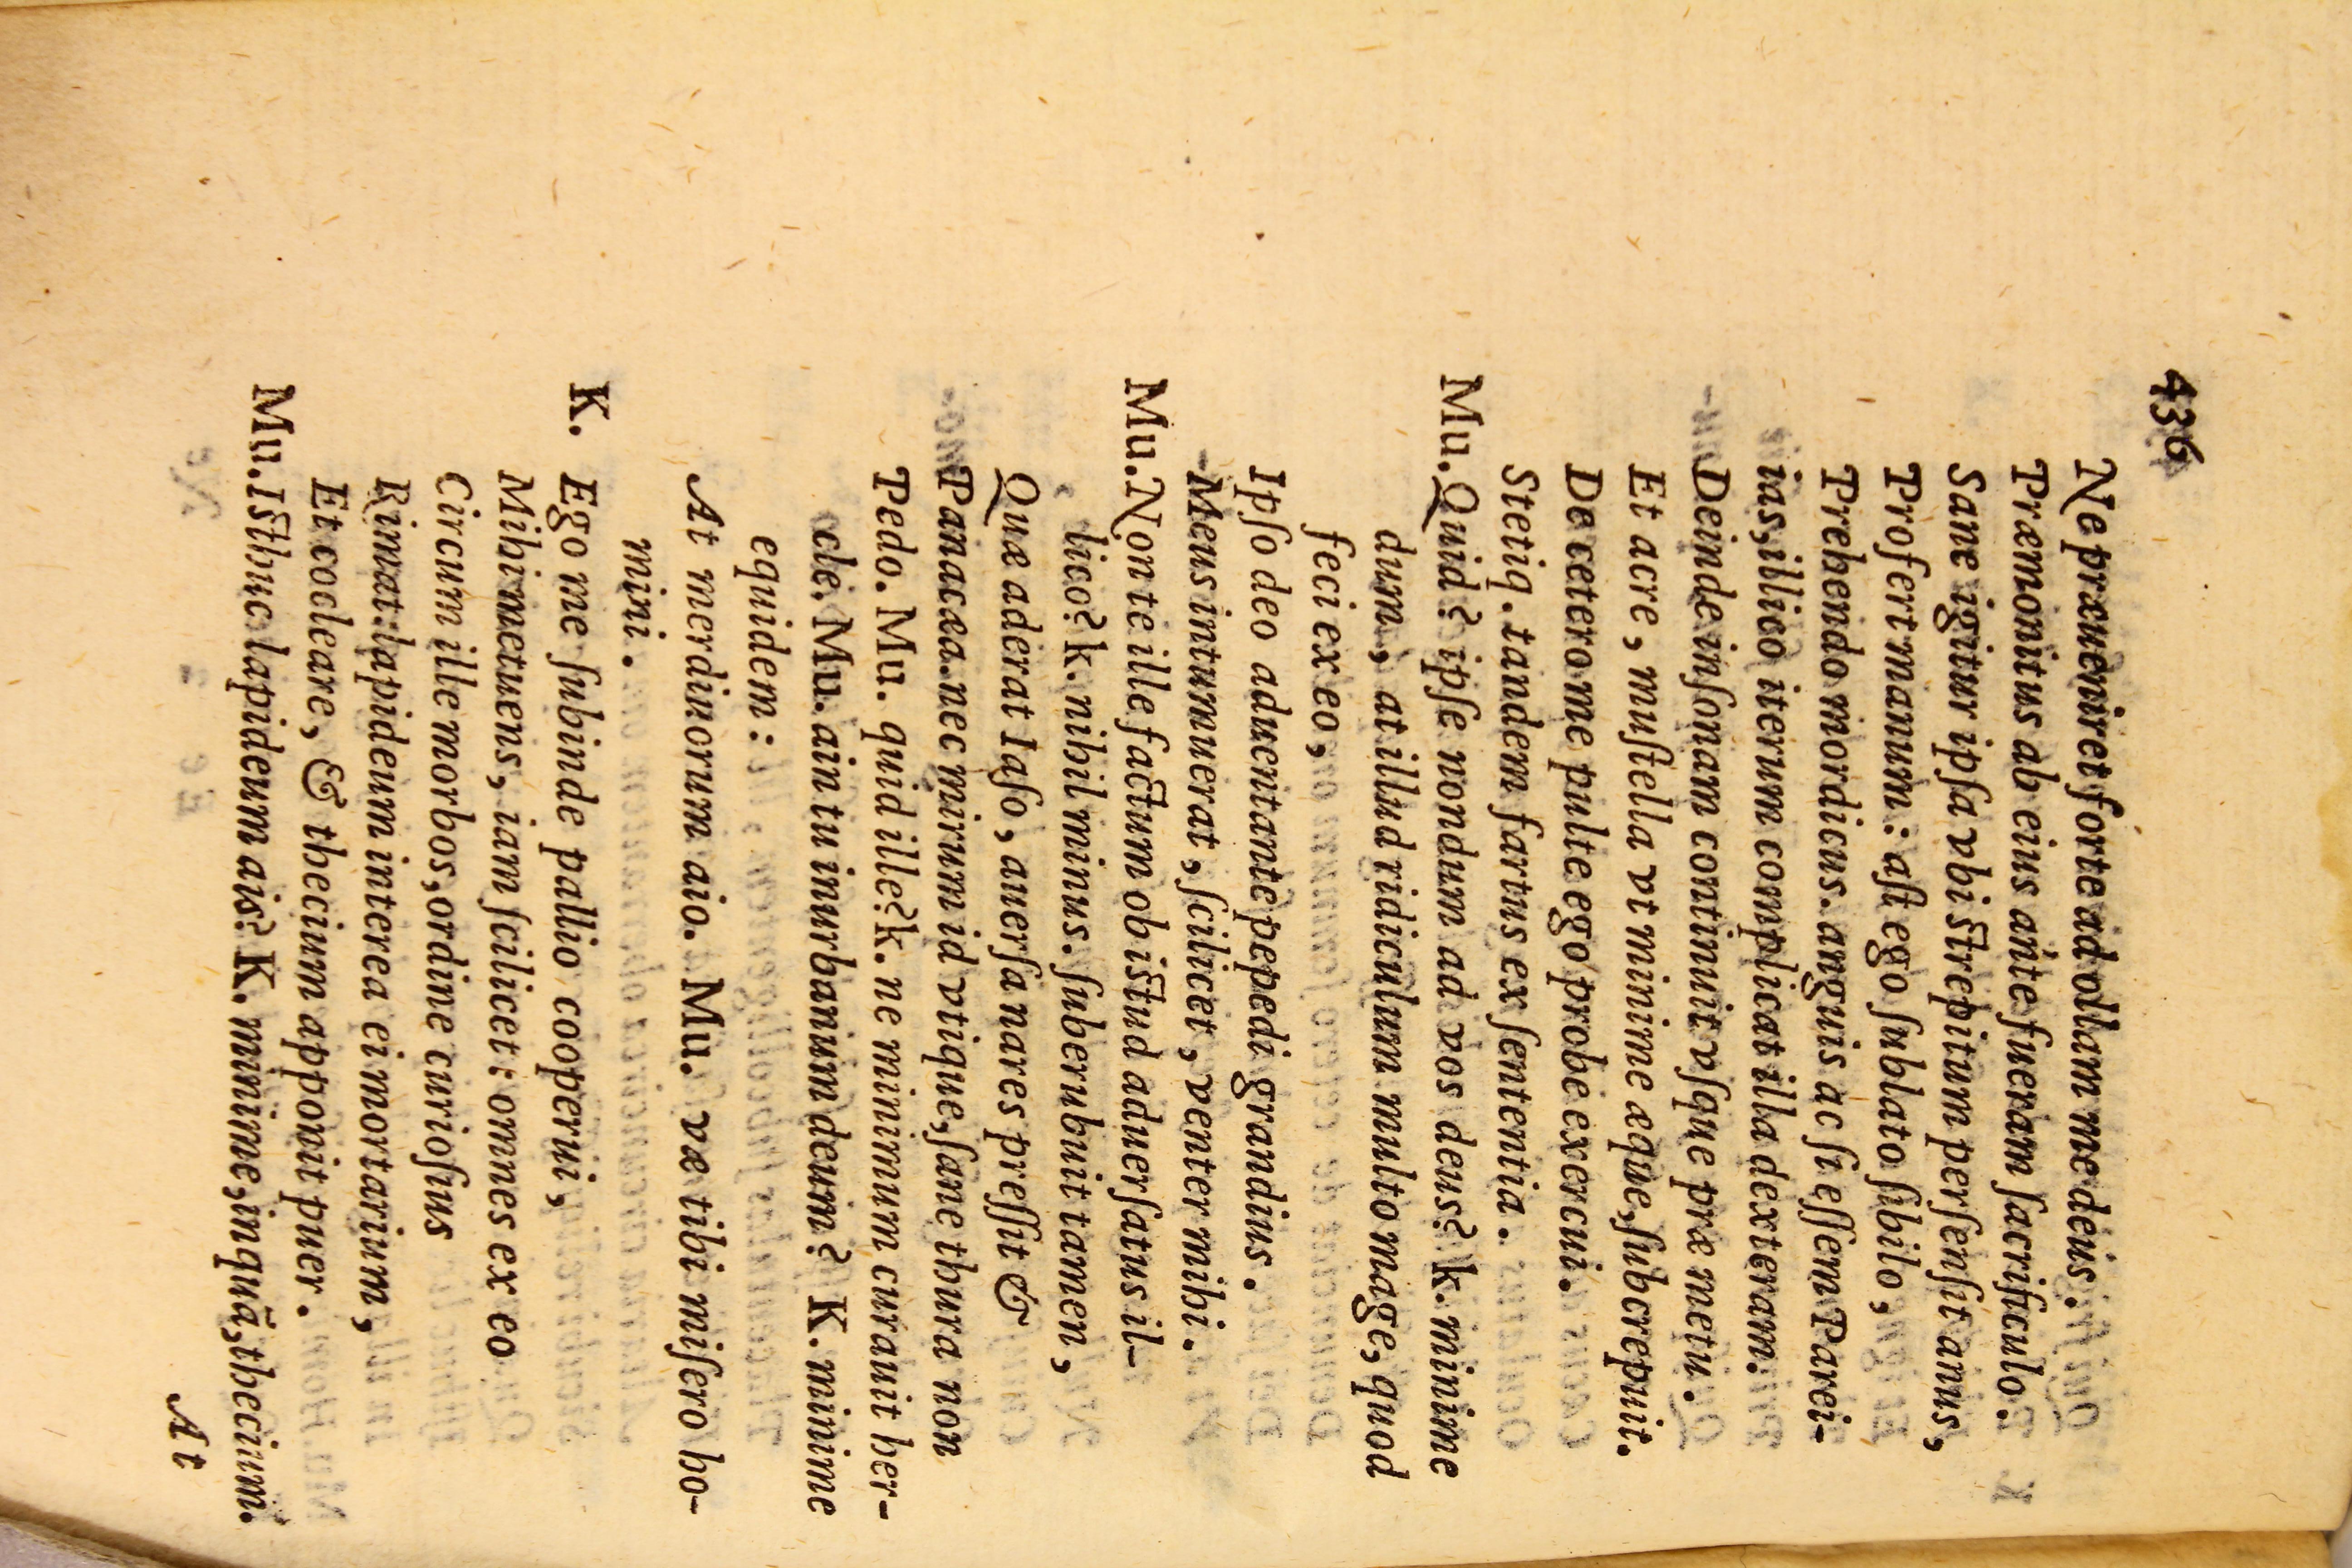 436
Ne præueniret forte ad ollam me deus:
Præmonitus ab eius ante fueram ſacrificulo:
Sane igitur ipſa vbi strepitum perſenſit anus,
Profert manum: aſt ego ſublato ſibilo,
Prehendo mordicus. anguis ac ſi eſſem Parei-
ias, illico iterum complicat illa dexteram.
Deinde inſonam continuit vſque præ metu.
Et acre, muſtela vt minime æque, ſubcrepuit.
De cetero me pulte ego probe exercui.
Stetiq. tandem fartus ex ſententia.
Mu. Quid? ipſe nondum ad vos deus? k. minime
dum, at illud ridiculum multo mage, quod
feci ex eo,
Ipſo deo aduentante pepedi grandius.
Mens intumuerat, ſcilicet, venter mihi.
Mu. Non te ille factum ob istud aduerſatus il-
lico? k. nihil minus. ſuberubuit tamen,
Quæ aderat Iaſo, auerſa nares preſſit &
Panacæa. nec mirum id vtique, ſane thura non
Pedo. Mu. quid ille? k. ne minimum curauit her-
cle. Mu. ain tu inurbanum deum? K. minime
equidem:
At merdinorum aio. Mu. væ tibi miſero ho-
mini.
K. Ego me ſubinde pallio cooperui,
Mihi metuens, iam ſcilicet: omnes ex eo
Circum ille morbos, ordine curioſius
Rimat: lapideum interea ei mortarium,
Et cocleare, & thecium apponit puer.
Mu. Isthuc lapideum ais? K. minime, inquã, thecium.
At